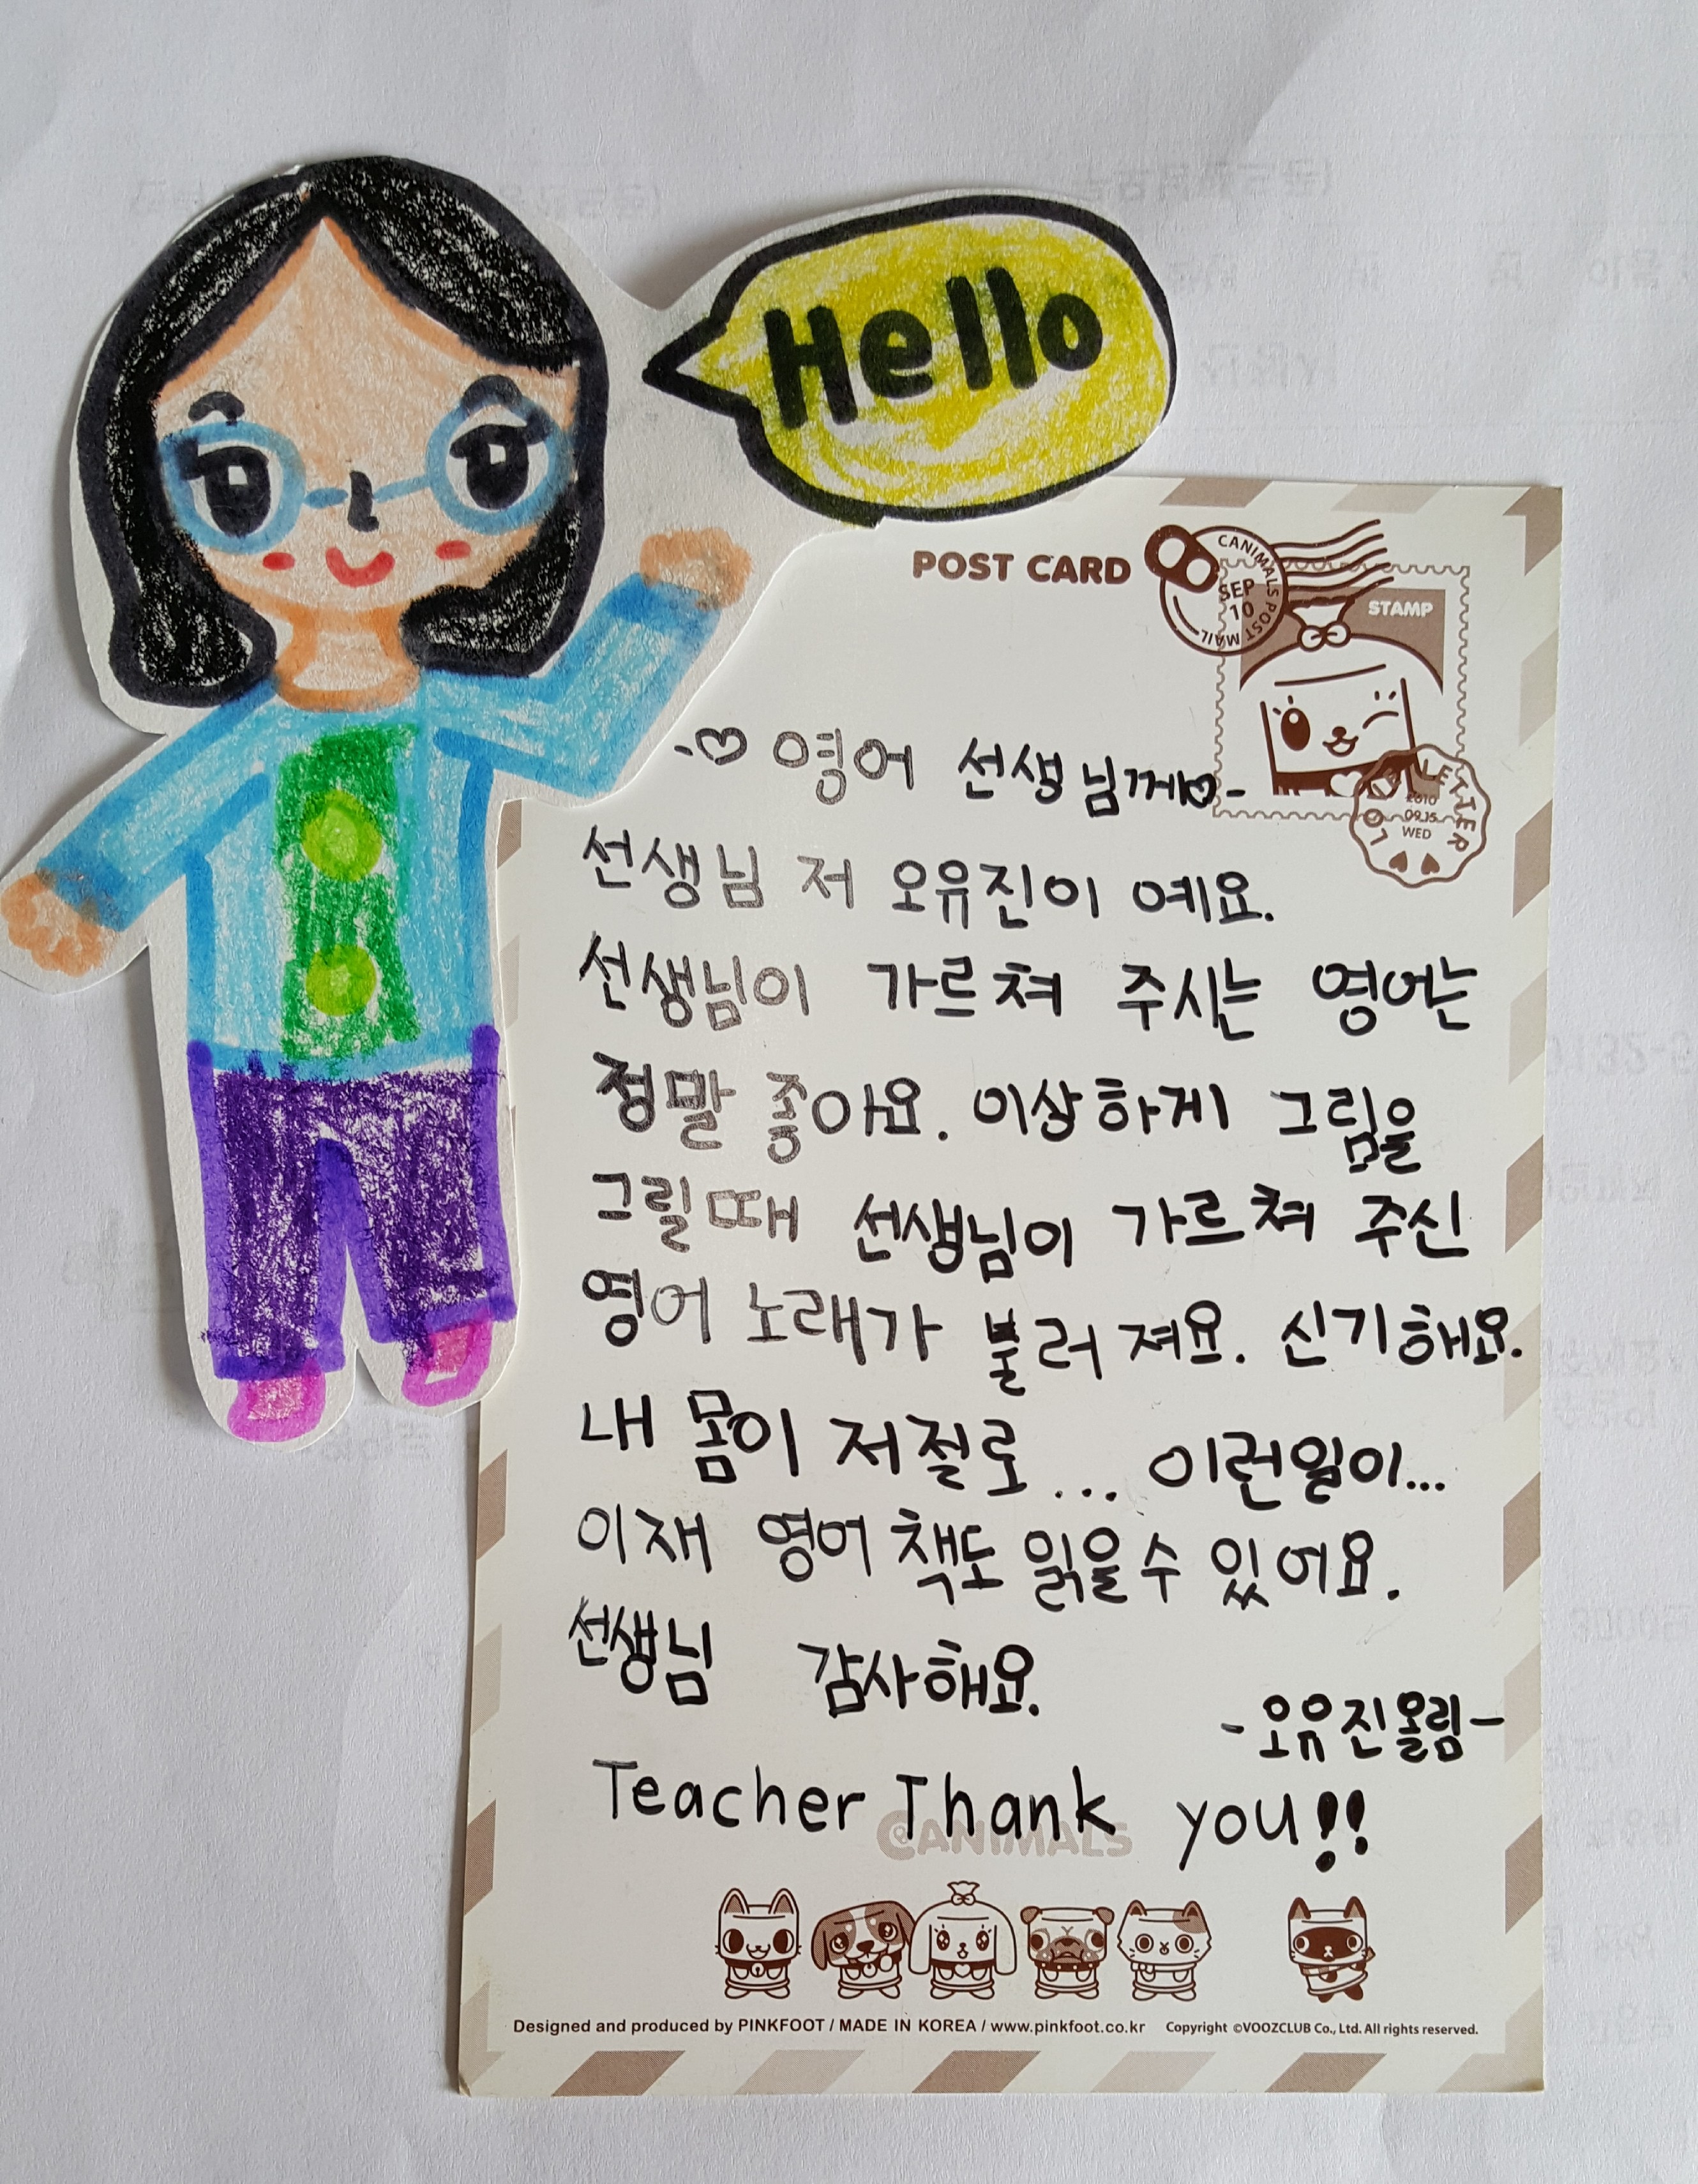 Hello
POST CARD
CANIMALS POST MAIL
SEP
10
STAMP
LOVE LETTER
2010
09.15
WED
-♡ 영어 선생님께♡-
선생님 저 오유진이 예요.
선생님이 가르쳐 주시는 영어는
정말 좋아요. 이상하게 그림을
그릴때 선생님이 가르쳐 주신
영어 노래가 불러 져요. 신기해요.
내 몸이 저절로... 이런일이...
이재 영어 책도 읽을수 있어요.
선생님 감사해요.
-오유진올림-
Teacher Thank you!!
CANIMALS
Designed and produced by PINKFOOT / MADE IN KOREA / www.pinkfoot.co.kr Copyright ©VOOZCLUB Co., Ltd. All rights reserved.